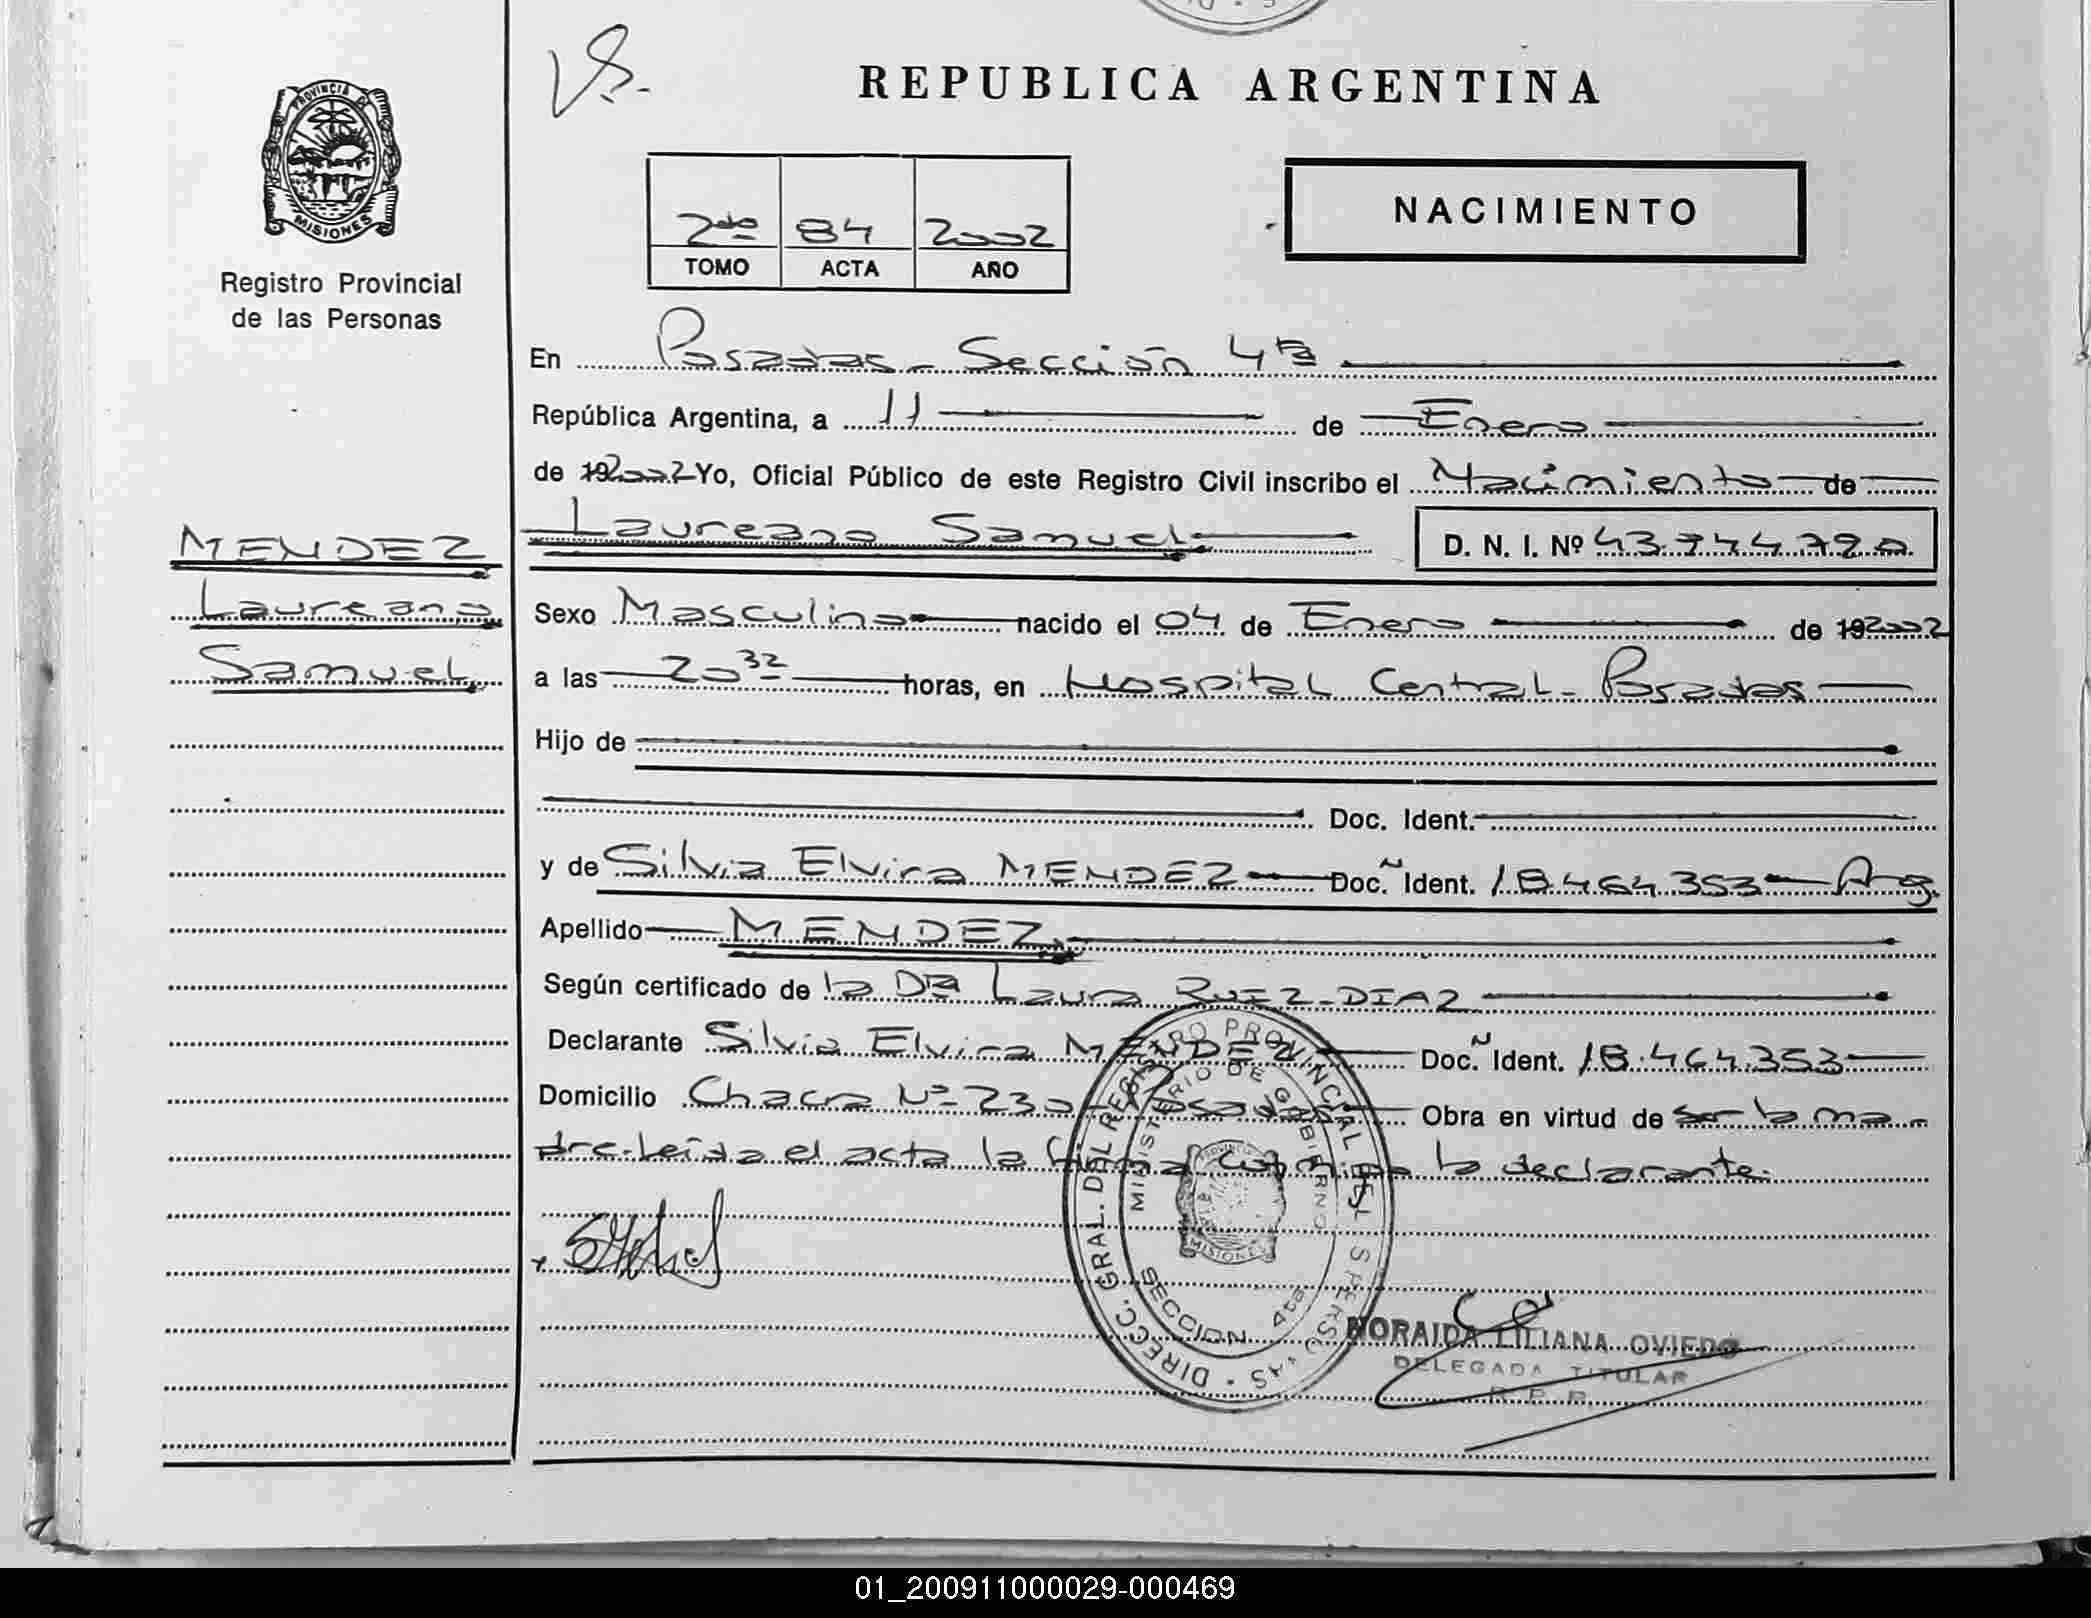 V.S.
REPUBLICA ARGENTINA
PROVINCIA DE
MISIONES
Registro Provincial
de las Personas
2do 84 2002
TOMO ACTA AÑO
NACIMIENTO
En Posadas - Sección 4ta
República Argentina, a 11 de Enero
de 192002 Yo, Oficial Público de este Registro Civil inscribo el Nacimiento de
MENDEZ
Laureano Samuel D. N. I. Nº 43.744.720
Laureano
Sexo Masculino nacido el 04 de Enero de 192002
Samuel
a las 20 32 horas, en Hospital Central - Posadas
Hijo de
Doc. Ident.
y de Silvia Elvira MENDEZ Doc. Ident. 18.464.353 Arg.
Apellido MENDEZ
Según certificado de la DRA Laura RUIZ-DIAZ
Declarante Silvia Elvira MENDEZ Doc. Ident. 18.464.353
Domicilio Chacra Nº 230 - Posadas Obra en virtud de ser la ma-
dre. Leída el acta la firma conmigo la declarante.
DIRECC. GRAL. DEL REGISTRO PROVINCIAL DE LAS PERSONAS
MINISTERIO DE GOBIERNO
SECCION 4ta
MISIONES
NORAIDA LILIANA OVIEDO
DELEGADA TITULAR
R. P. P.
01_200911000029-000469